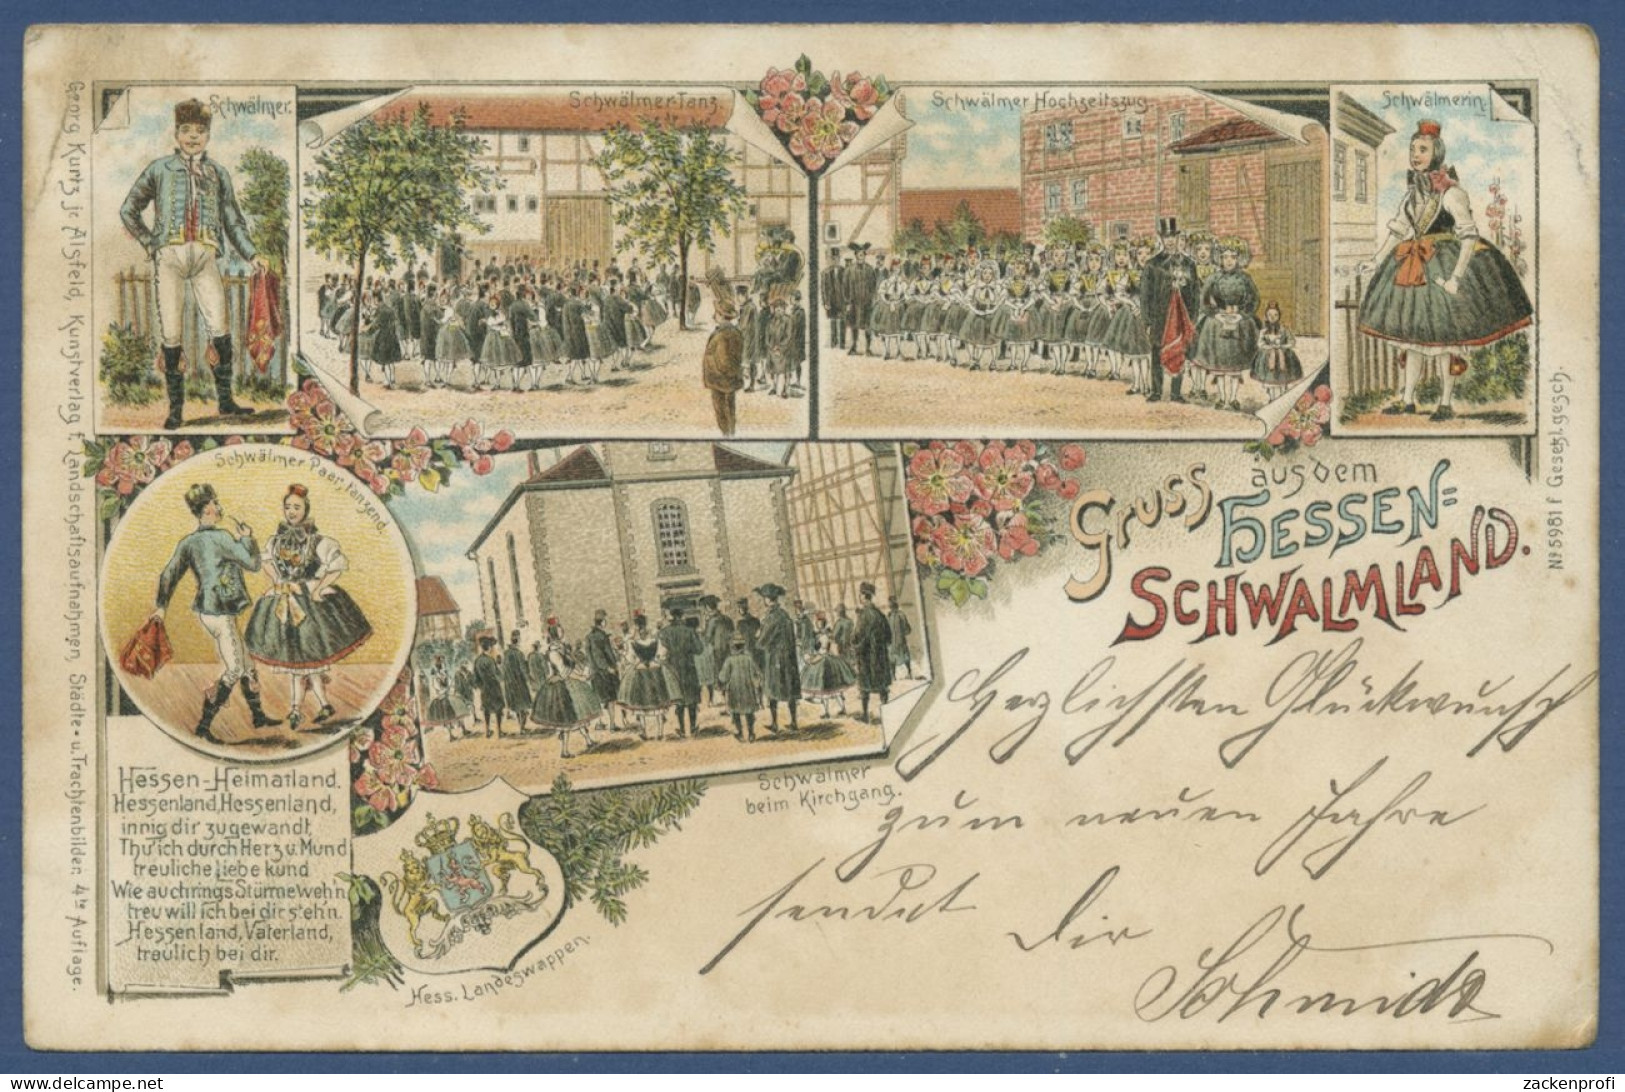 Schwälmer.
Schwälmer Tanz.
Schwälmer Hochzeitszug
Schwälmerin.
Georg Kurtz jr Alsfeld, Kunstverlag f. Landschaftsaufnahmen, Städte- u. Trachtenbilder. 4te Auflage.
No 5981 f Gesetzl. gesch.
Gruss aus dem
HESSEN=
SCHWALMLAND.
Schwälmer Paar tanzend.
Schwälmer
beim Kirchgang.
Hessen-Heimatland.
Hessenland, Hessenland,
innig dir zugewandt,
Thu' ich durch Herz u. Mund
treuliche Liebe kund
Wie auch rings Stürme weh'n
treu will ich bei dir steh'n.
Hessenland, Vaterland,
traulich bei dir.
Hess. Landeswappen.
Herzlichsten Glückwunsch
zum neuen Jahre
sendet
Dir
Schmidt
zackenprofi
© delcampe.net